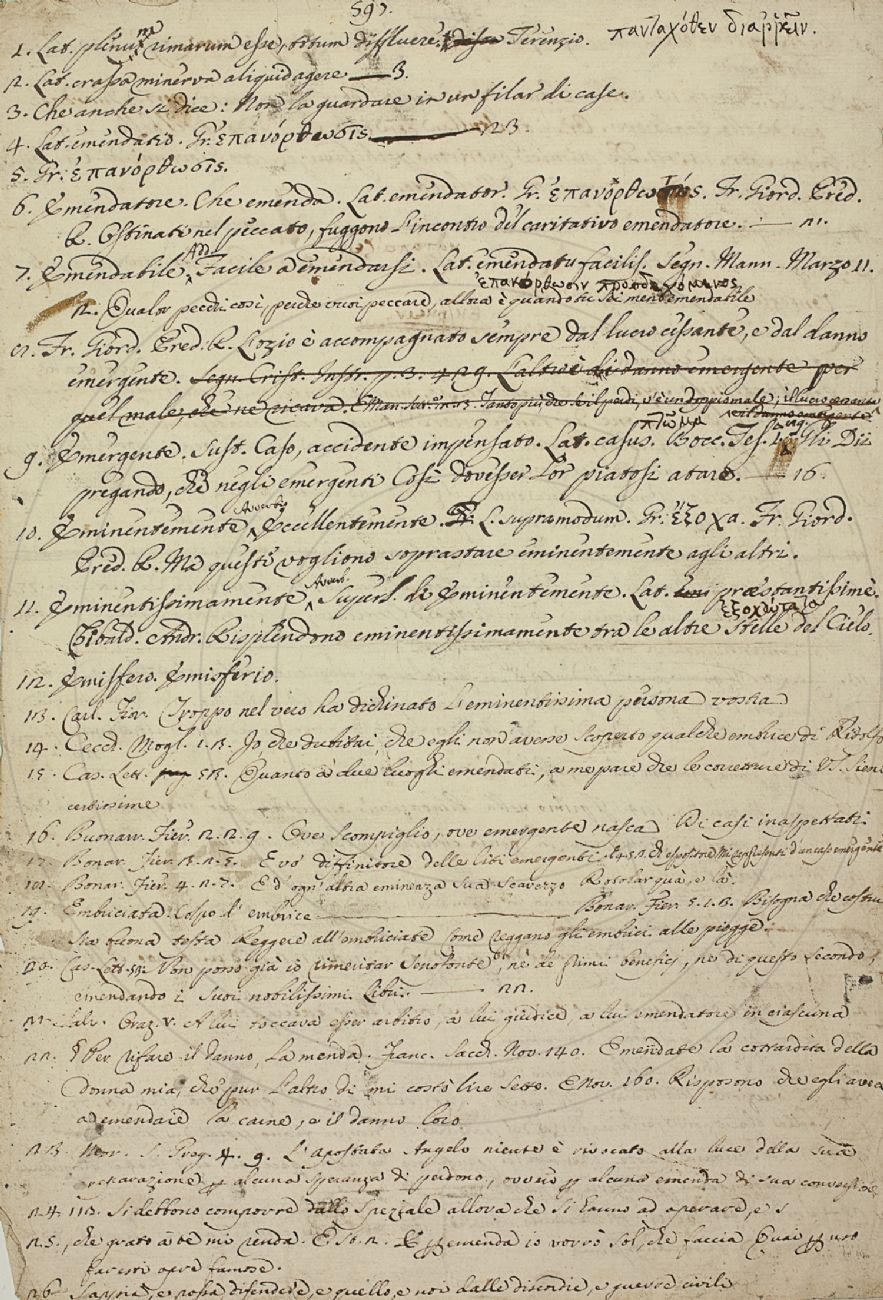 597.
1. Lat. plenum rimarum esse, totum diffluere. Terenzio. πανταχόθεν διαῤῥεῖν.
2. Lat. crassa minerva aliquid agere — 3.
3. Che anche si dice: Non la guardare in un filar di case.
4. Lat. emendatio. Gr. ἐπανόρθωσις. — 23
5. Gr. ἐπανόρθωσις.
6. Emendatore. Che emenda. Lat. emendator. Gr. ἐπανορθωτής. Fr. Giord. Pred.
R. Ostinati nel peccato, fuggono l'incontro del caritativo emendatore. — 21.
7. Emendabile Add. Facile a emendarsi. Lat. emendatu facilis. Segn. Mann. Marzo 11.
ἐπανόρθωσιν προσδεχόμενος
2. Qualor pecchi così, perchè vuoi peccare, allora è quando tu sei men emendabile
8. Fr. Giord. Pred. R. L'ozio è accompagnato sempre dal lucro cessante, e dal danno
emergente. Segn. Crist. Instr. p. 3. 4. 29. L'altro è di danno emergente per
quel male, che ne ricava.
πτῶμα
9. Emergente. Sust. Caso, accidente impensato. Lat. casus. Bocc. Tes. Gli Dii
pregando, che negli emergenti Così dovesser lor piatosi atare. — 16.
10. Eminentemente Avverb. Eccellentemente. L. supramodum. Gr. ἔξοχα. Fr. Giord.
Pred. R. Ma questi vogliono soprastare eminentemente agli altri.
11. Eminentissimamente Avverb. Superl. di Eminentemente. Lat. præstantissimè.
ἐξοχώτατα
Tibald. Andr. Risplendono eminentissimamente tra le altre Stelle del Cielo.
12. Emispero. Emisperio.
13. Carl. Fior. Troppo nel vero ha dichinato l'eminentissima persona vostra
14. Cecch. Mogl. 1. 3. Io che dubitai, che egli non avesse scoperto qualche embrice di Ridolfo
15. Cas. Lett. 53. Quanto a' due luoghi emendati, a me pare che le correzioni di V. S. sieno
certissime
16. Buonarr. Fier. 2. 2. 9. Ove scompiglio, ove emergente nasca Di casi inaspettati.
17. Bonar. Fier. 3. 2. 5. E vo' diffinitore delle liti emergenti.
18. Bonar. Fier. 4. 2. 7. E d'ogn'altra eminenza sua scavezzo Rotolar quà, e là.
19. Embriciata. Colpo d'embrice — Bonar. Fier. 5. 1. 3. Bisogna che costui
Sia buona testa Reggere all'embriciate Come reggano gli embrici alle piogge.
20. Cas. Lett. 58. Non posso già io rimeritar Senofonte, nè de' primi benefici, nè di questo secondo,
emendando i suoi nobilissimi libri. — 22.
21. Salv. Graz. V. A lui toccava esser arbitro, a lui giudice, a lui emendatore in ciascuna
22. § Per rifare il danno, la menda. Franc. Sacch. Nov. 140. Emendate la codardita della
donna mia, che pur l'altro dì mi costò lire sette. E Nov. 160. Risposono che egli avea
ad emendare la carne, e il danno loro
23. Mor. S. Greg. 4. 9. L'apostata Angelo niente è rivocato alla luce della sua
restaurazione per alcuna speranza di perdono, ovvero per alcuna emenda di sua conversione
24. 113. Si debbono comporre dallo speziale allora che si hanno ad operare, e s
25. , che grato a te mi renda. E per emenda io vorrò sol, che faccia
favesti opre famose.
26. Sappia, e possa difendere, e quello, e noi dalle discordie, e guerre civili